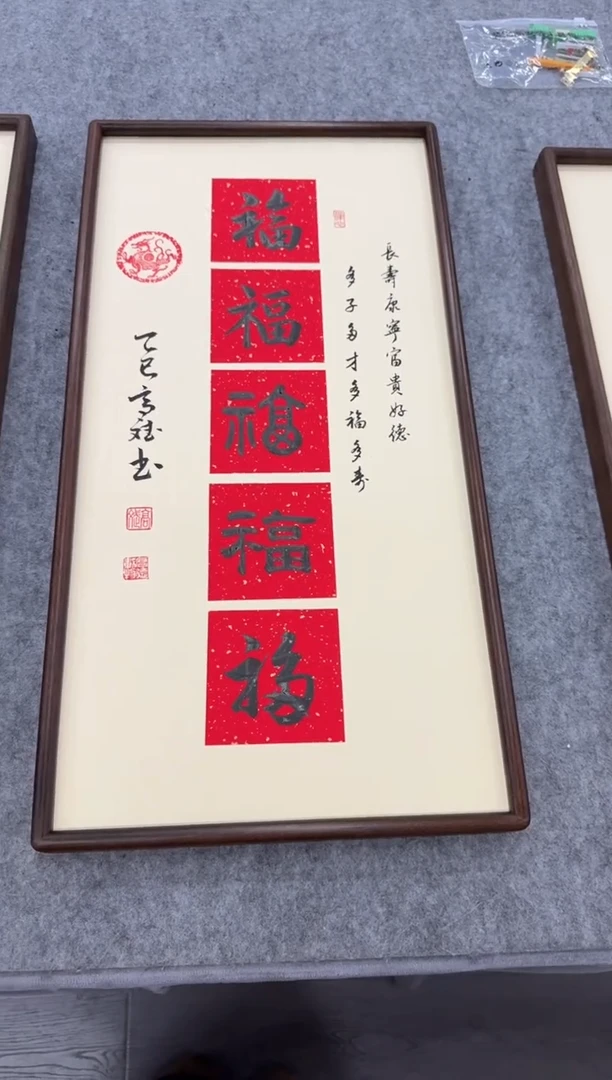 長壽康寧富貴好德
多子多才多福多寿
福
福
福
福
福
乙巳高斌书